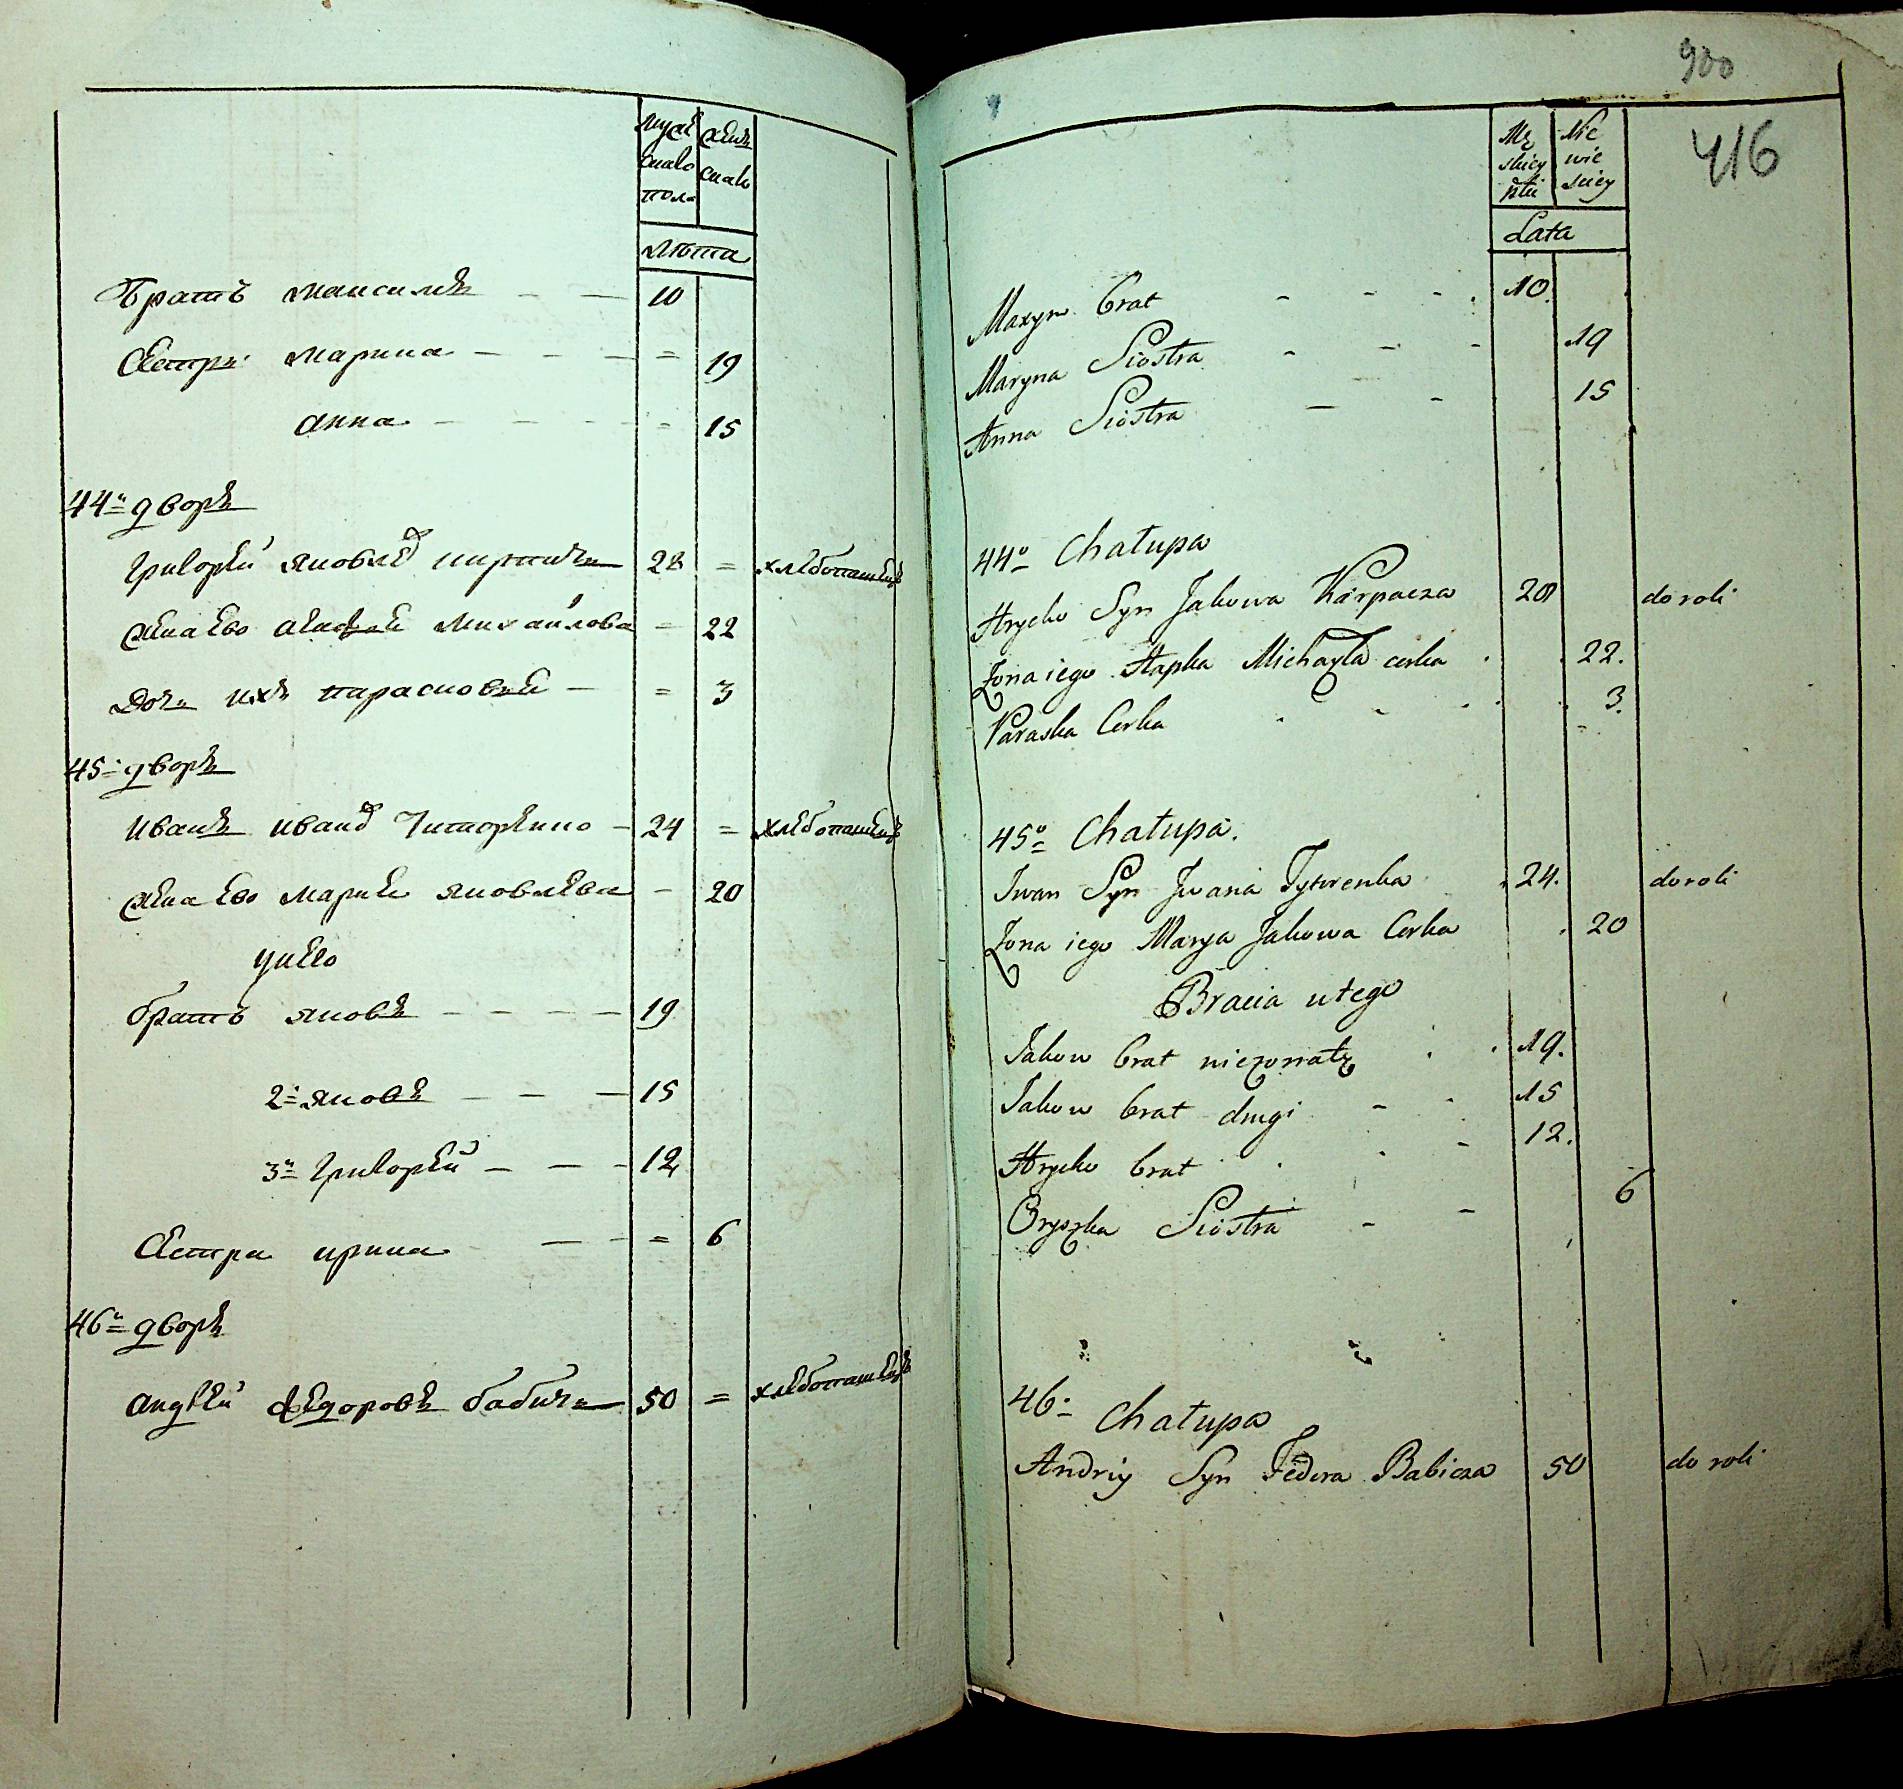 мужеска пола
женска
лѣта
братъ максимъ – – 10
сестры марина – – – = 19
анна – – – = 15
44й дворъ
григорей яковлев карпачъ 28 = хлебопашецъ
жена ево агафия михайлова = 22
дочь ихъ парасковея – = 3
45й дворъ
иванъ иванов титоренко – 24 = хлебопашецъ
жена ево мария яковлева – 20
у него
братъ яковъ – – – – 19
2й яковъ – – – 15
3й григорей – – – 12
сестра ирина – – = 6
46й дворъ
андрей федоровъ бабичъ 50 = хлебопашецъ
900
416
Mę skiey płci
Nie wie sciey
Lata
Maxym brat - - - 10.
Maryna Siostra - - - 19
Anna Siostra – - 15
44o Chałupa
Hryćko Syn Jakowa Karpacza 28 do roli
Żona iego Hapka Michayła corka 22.
Paraska Corka 3.
45o Chałupa.
Iwan Syn Iwana Tytorenka 24. do roli
Żona iego Marya Jakowa Corka 20
Bracia u tego
Jakow brat nieżonaty 19.
Jakow brat drugi - - 15
Hryćko brat - 12.
Oryszka Siostra - - 6
46o Chałupa
Andriy Syn Fedora Babicza 50 do roli